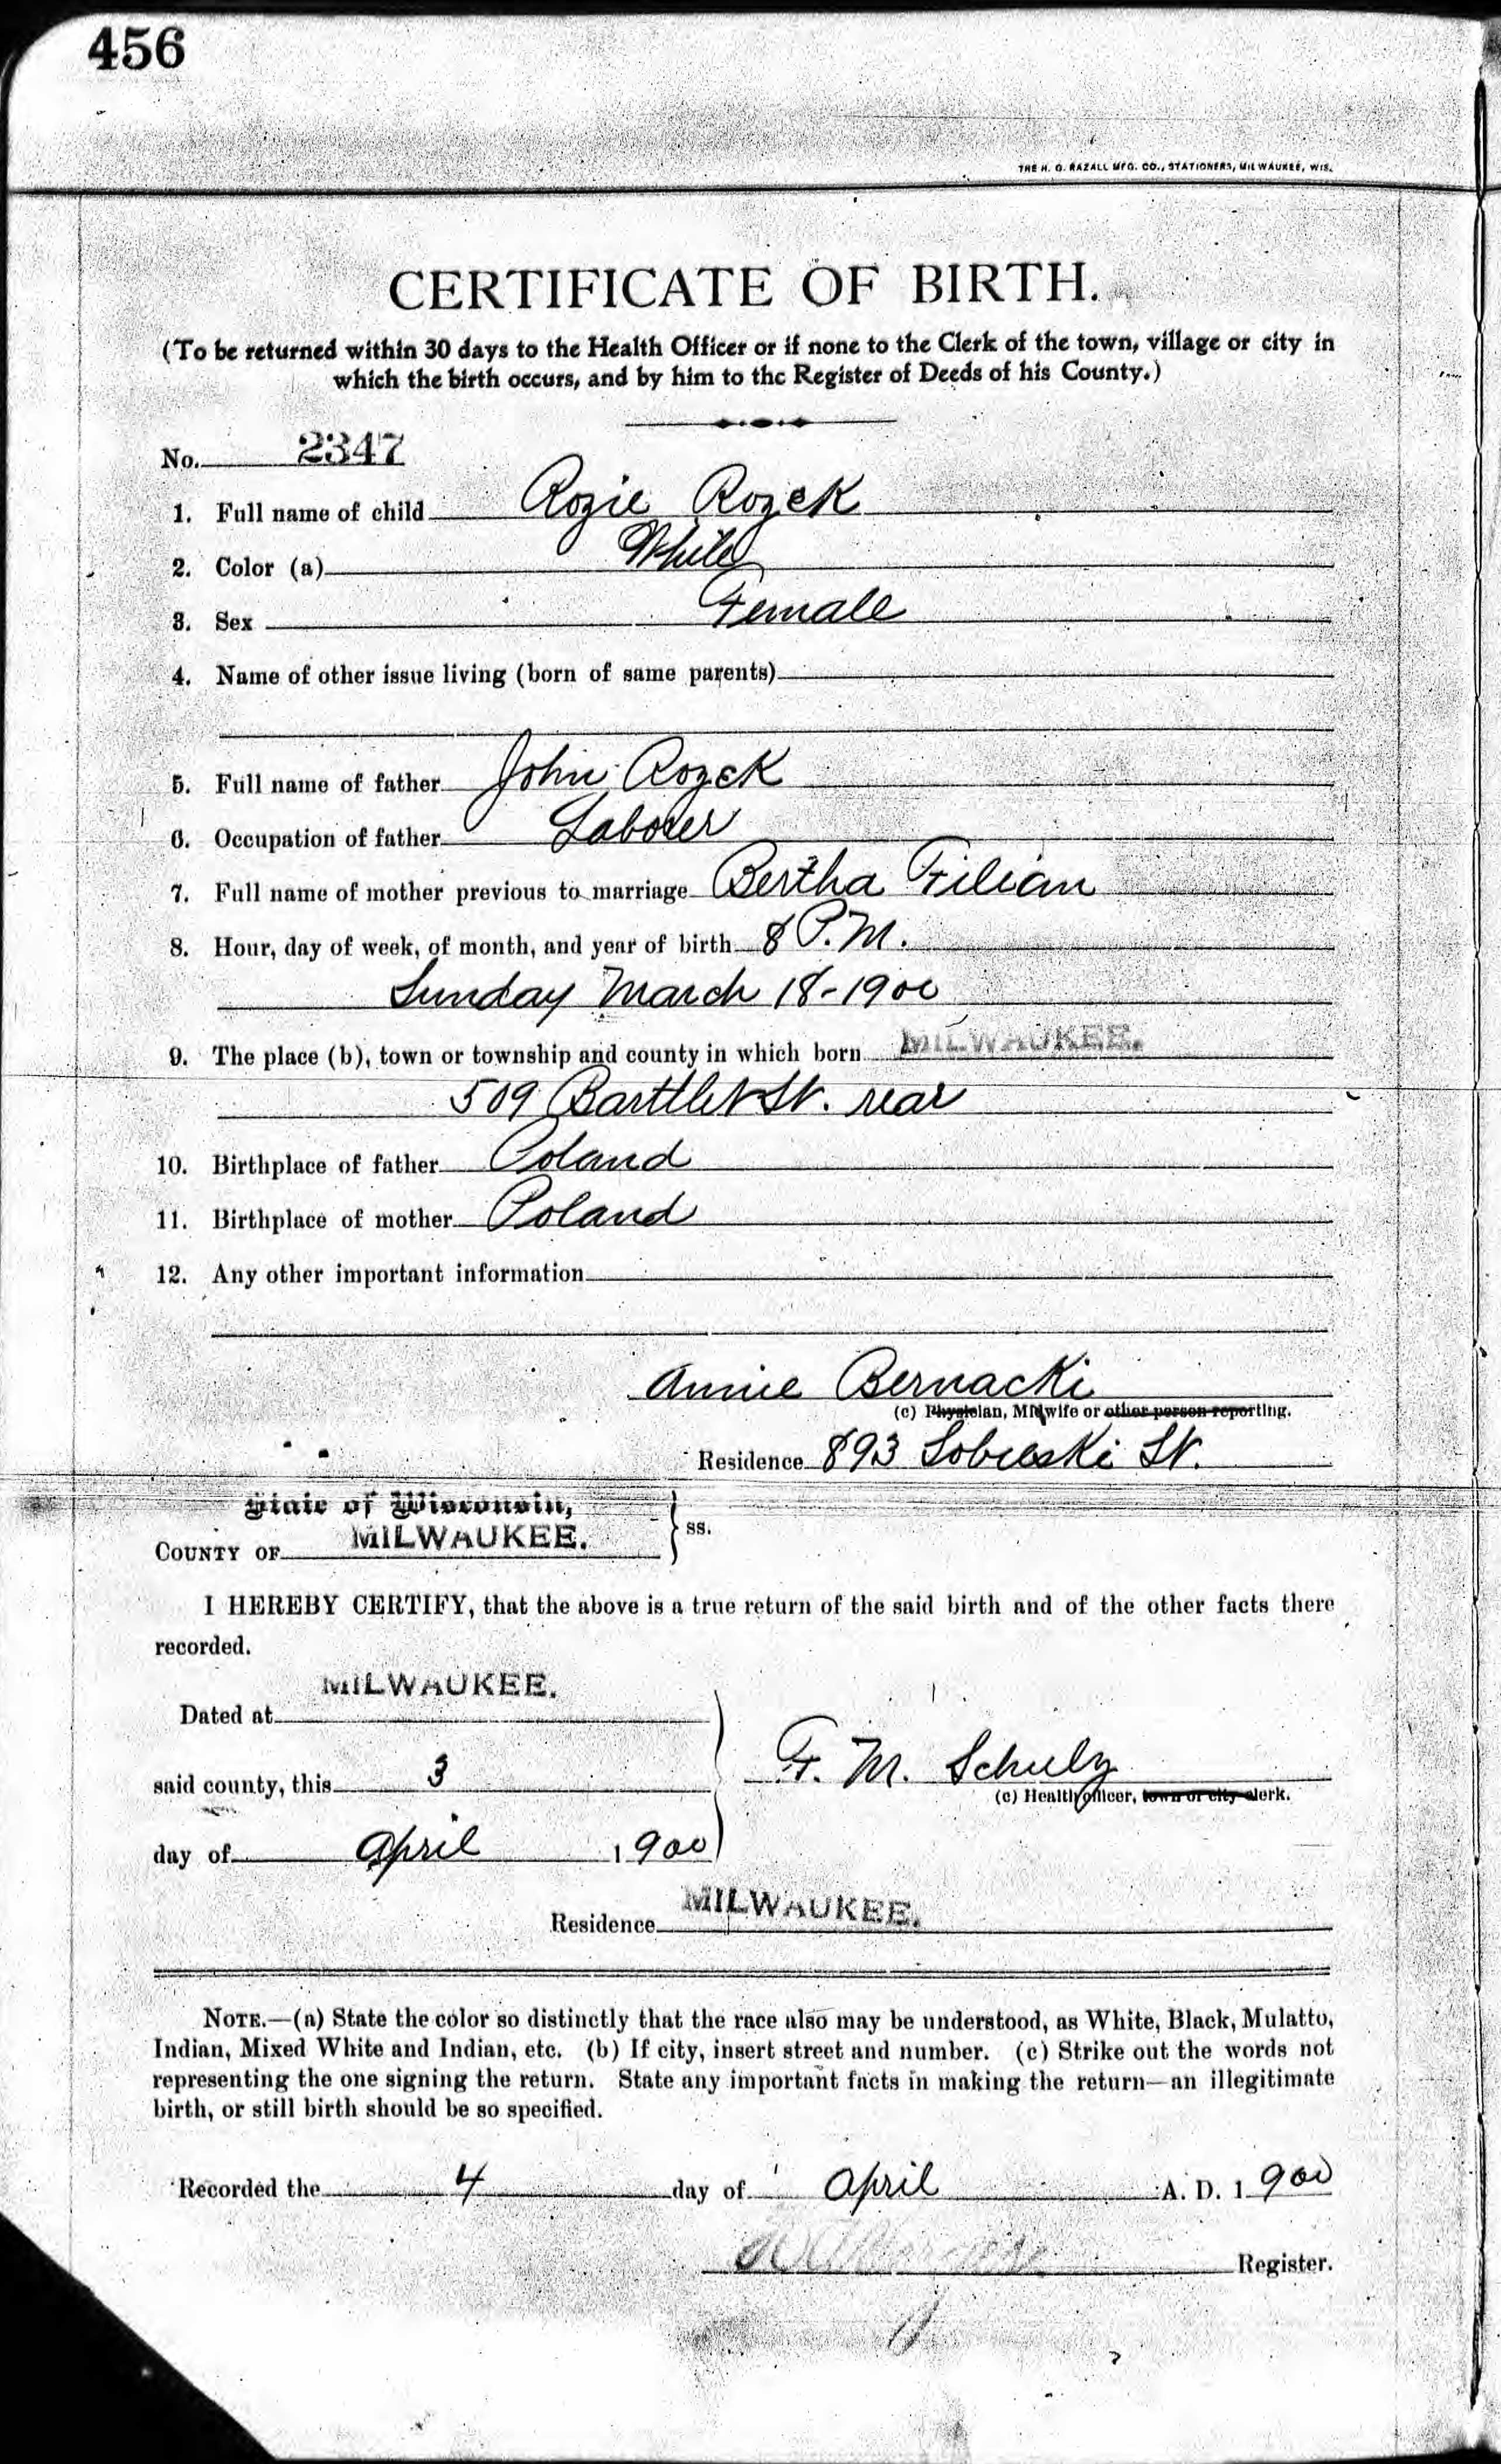 456
THE H. G. RAZALL MFG. CO., STATIONERS, MILWAUKEE, WIS.
CERTIFICATE OF BIRTH.
(To be returned within 30 days to the Health Officer or if none to the Clerk of the town, village or city in
which the birth occurs, and by him to the Register of Deeds of his County.)
No. 2347
1. Full name of child Rozie Rozek
2. Color (a) White
3. Sex Female
4. Name of other issue living (born of same parents)
5. Full name of father John Rozek
6. Occupation of father Laborer
7. Full name of mother previous to marriage Bertha Filian
8. Hour, day of week, of month, and year of birth 8 P.M.
Sunday March 18-1900
9. The place (b), town or township and county in which born MILWAUKEE.
509 Barttlet St. rear
10. Birthplace of father Poland
11. Birthplace of mother Poland
12. Any other important information
Annie Bernacki
(c) Physician, Midwife or other person reporting.
Residence 893 Sobieski St.
State of Wisconsin,
COUNTY OF MILWAUKEE. ss.
I HEREBY CERTIFY, that the above is a true return of the said birth and of the other facts there
recorded.
MILWAUKEE.
Dated at
said county, this 3
F. M. Schulz
(c) Health officer, town or city clerk.
day of April 1900
Residence MILWAUKEE.
NOTE.—(a) State the color so distinctly that the race also may be understood, as White, Black, Mulatto,
Indian, Mixed White and Indian, etc. (b) If city, insert street and number. (c) Strike out the words not
representing the one signing the return. State any important facts in making the return—an illegitimate
birth, or still birth should be so specified.
Recorded the 4 day of April A. D. 1900
Register.